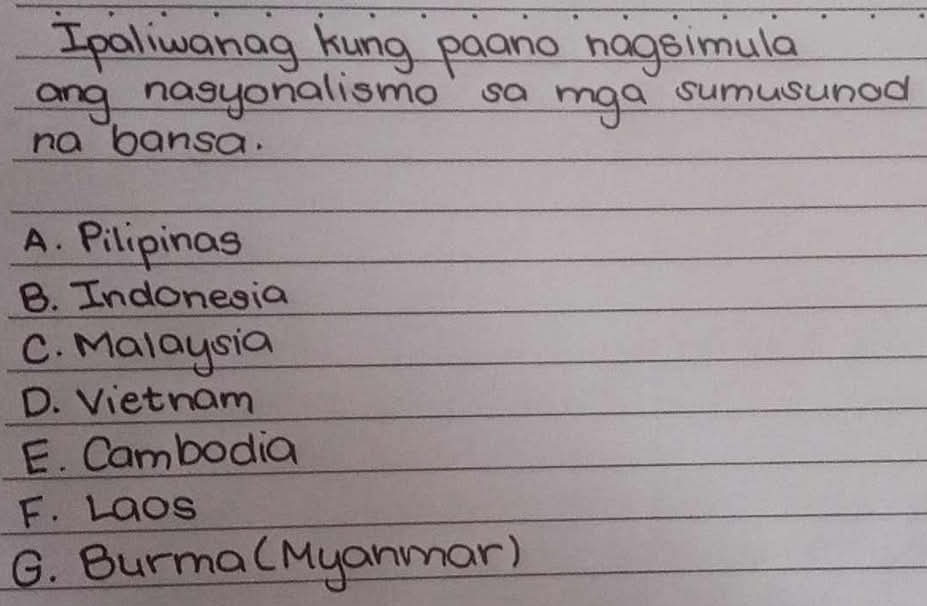 Ipaliwanag kung paano nagsimula
ang nasyonalismo sa mga sumusunod
na bansa.
A. Pilipinas
B. Indonesia
C. Malaysia
D. Vietnam
E. Cambodia
F. Laos
G. Burma (Myanmar)